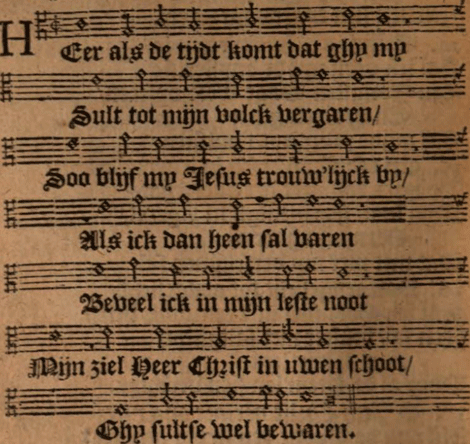 HEer als de tijdt komt dat ghy my
Sult tot mijn volck vergaren/
Soo blijf my Jesus trouw'lijck by/
Als ick dan heen sal varen
Beveel ick in mijn leste noot
Mijn ziel Heer Christ in uwen schoot/
Ghy sultse wel bewaren.